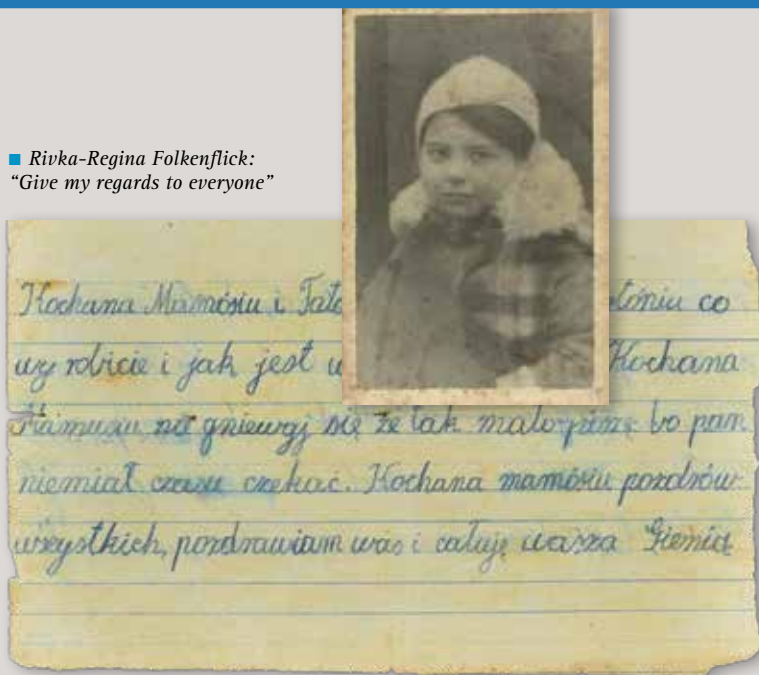 Rivka-Regina Folkenflick:
“Give my regards to everyone”
Kochana Mamósiu i Tato
co
wy robicie i jak jest w Kochana
Mamusiu nie gniewaj się że tak mało piszę bo pan
niemiał czasu czekać. Kochana mamósiu pozdrów
wszystkich, pozdrawiam was i całuję wasza Gienia